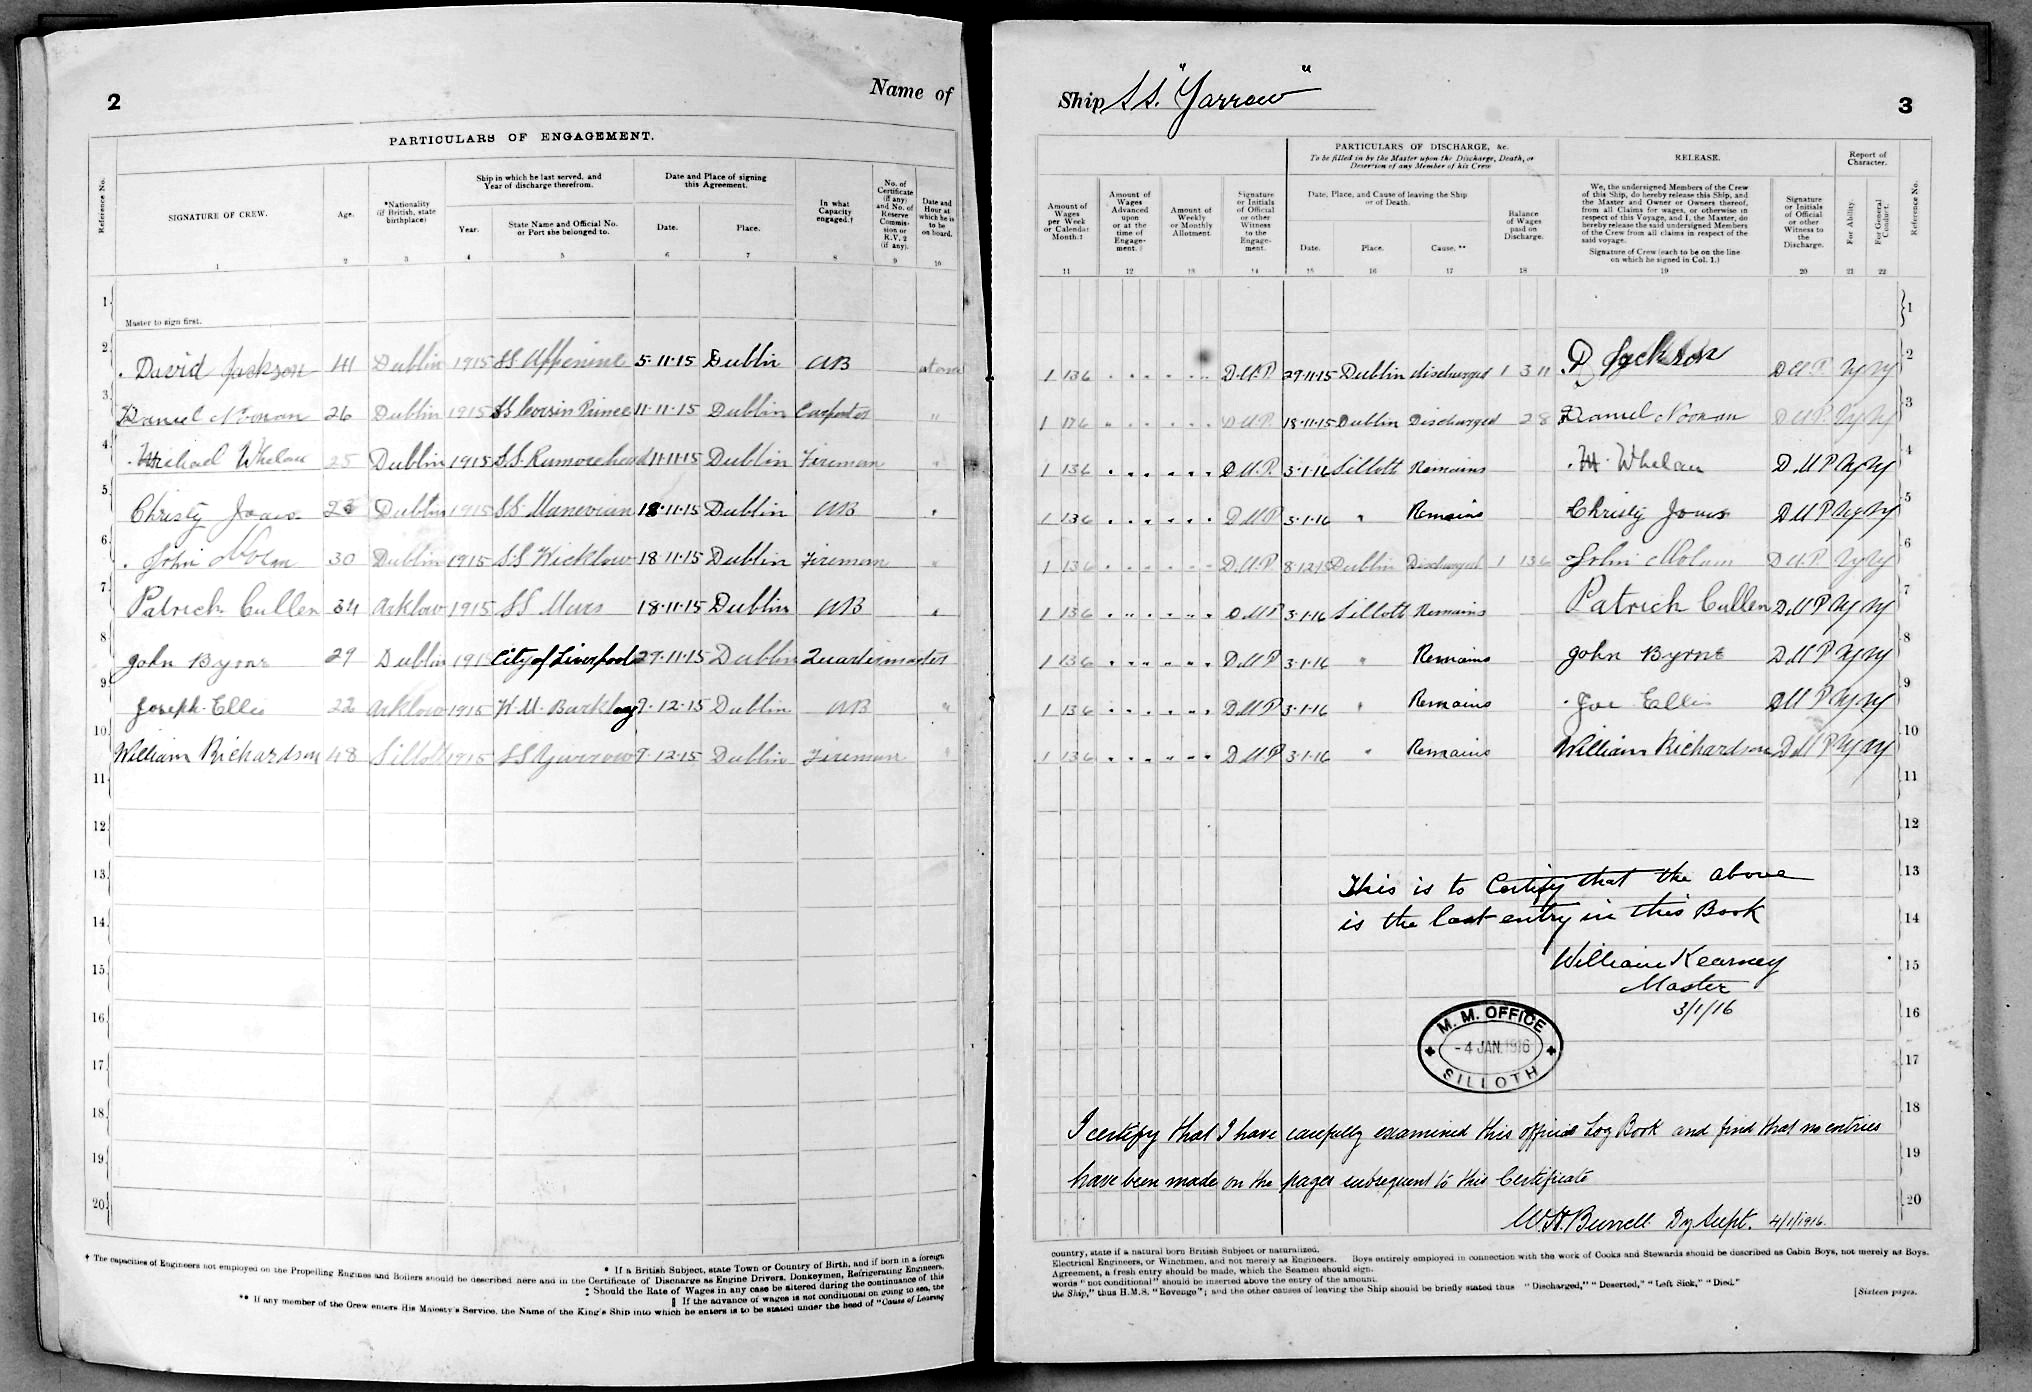 2
Name of
PARTICULARS OF ENGAGEMENT.
Reference No.
SIGNATURE OF CREW.
Age.
*Nationality
(if British, state
birthplace)
Ship in which he last served, and
Year of discharge therefrom.
Year.
State Name and Official No.
or Port she belonged to.
Date and Place of signing
this Agreement.
Date.
Place.
In what
Capacity
engaged.†
No. of
Certificate
(if any)
and No. of
Reserve
Commis-
sion or
R.V. 2
(if any).
Date and
Hour at
which he is
to be
on board.
1 2 3 4 5 6 7 8 9 10
1
Master to sign first.
2 David Jackson 41 Dublin 1915 SS Appenine 5·11·15 Dublin AB at once
3 Daniel Noonan 26 Dublin 1915 SS Corsin Prince 11·11·15 Dublin Carpenter "
4 Michael Whelan 25 Dublin 1915 S.S. Ramorehead 11·11·15 Dublin Fireman "
5 Christy Jones Dublin 1915 SS 18·11·15 Dublin AB "
6 John Nolan 30 Dublin 1915 SS Wicklow 18·11·15 Dublin Fireman "
7 Patrick Cullen 34 Arklow 1915 SS Mars 18·11·15 Dublin AB "
8 John Byrne 29 Dublin 1915 City of Liverpool 27·11·15 Dublin Quartermaster
9 Joseph Ellis 22 Arklow 1915 W.M. Barkley 9·12·15 Dublin AB "
10 William Richardson 48 Silloth 1915 SS Yarrow 9·12·15 Dublin Fireman "
11
12
13
14
15
16
17
18
19
20
† The capacities of Engineers not employed on the Propelling Engines and Boilers should be described here and in the Certificate of Discharge as Engine Drivers, Donkeymen, Refrigerating Engineers,
* If a British Subject, state Town or Country of Birth, and if born in a foreign
‡ Should the Rate of Wages in any case be altered during the continuance of this
‖ If the advance of wages is not conditional on going to sea, the
** If any member of the Crew enters His Majesty's Service, the Name of the King's Ship into which he enters is to be stated under the head of "Cause of Leaving
Ship SS. "Yarrow"
3
Amount of
Wages
per Week
or Calendar
Month.‡
Amount of
Wages
Advanced
upon
or at the
time of
Engage-
ment.
Amount of
Weekly
or Monthly
Allotment.
Signature
or Initials
of Official
or other
Witness
to the
Engage-
ment.
PARTICULARS OF DISCHARGE, &c.
To be filled in by the Master upon the Discharge, Death, or
Desertion of any Member of his Crew
Date, Place, and Cause of leaving the Ship
or of Death.
Date.
Place.
Cause.**
Balance
of Wages
paid on
Discharge.
RELEASE.
We, the undersigned Members of the Crew
of this Ship, do hereby release this Ship, and
the Master and Owner or Owners thereof,
from all Claims for wages, or otherwise in
respect of this Voyage, and I, the Master, do
hereby release the said undersigned Members
of the Crew from all claims in respect of the
said voyage.
Signature of Crew (each to be on the line
on which he signed in Col. 1.)
Signature
or Initials
of Official
or other
Witness to
the
Discharge.
Report of
Character.
For Ability.
For General
Conduct.
Reference No.
11 12 13 14 15 16 17 18 19 20 21 22
1
1 13 6 D.M.P. 29·11·15 Dublin discharged 1 3 11 D Jackson D M P. 2
1 17 6 D M P. 18·11·15 Dublin Discharged 2 8 Daniel Noonan D M P. 3
1 13 6 D.M.P. 3·1·16 Silloth Remains M. Whelan D M P 4
1 13 6 D M P 3·1·16 " Remains Christy Jones D M P 5
1 13 6 D.M.P. 8·12·15 Dublin Discharged 1 13 6 John Nolan D M P. 6
1 13 6 D M P 3·1·16 Silloth Remains Patrick Cullen D M P 7
1 13 6 D.M P 3·1·16 " Remains John Byrne D M P 8
1 13 6 D.M P 3·1·16 " Remains Joe Ellis D M P 9
1 13 6 D M P 3·1·16 " Remains William Richardson D M P 10
11
12
This is to Certify that the above 13
is the last entry in this Book 14
William Kearney 15
Master
3/1/16 16
M. M. OFFICE
- 4 JAN. 1916
SILLOTH
17
18
I certify that I have carefully examined this official Log Book and find that no entries
19
have been made on the pages subsequent to this Certificate
20
W.H. Burrell Dy Supt. 4/1/1916.
country, state if a natural born British Subject or naturalized.
Electrical Engineers, or Winchmen, and not merely as Engineers. Boys entirely employed in connection with the work of Cooks and Stewards should be described as Cabin Boys, not merely as Boys.
Agreement, a fresh entry should be made, which the Seamen should sign.
words "not conditional" should be inserted above the entry of the amount.
the Ship," thus H.M.S. "Revenge"; and the other causes of leaving the Ship should be briefly stated thus "Discharged," "Deserted," "Left Sick," "Died."
[Sixteen pages.